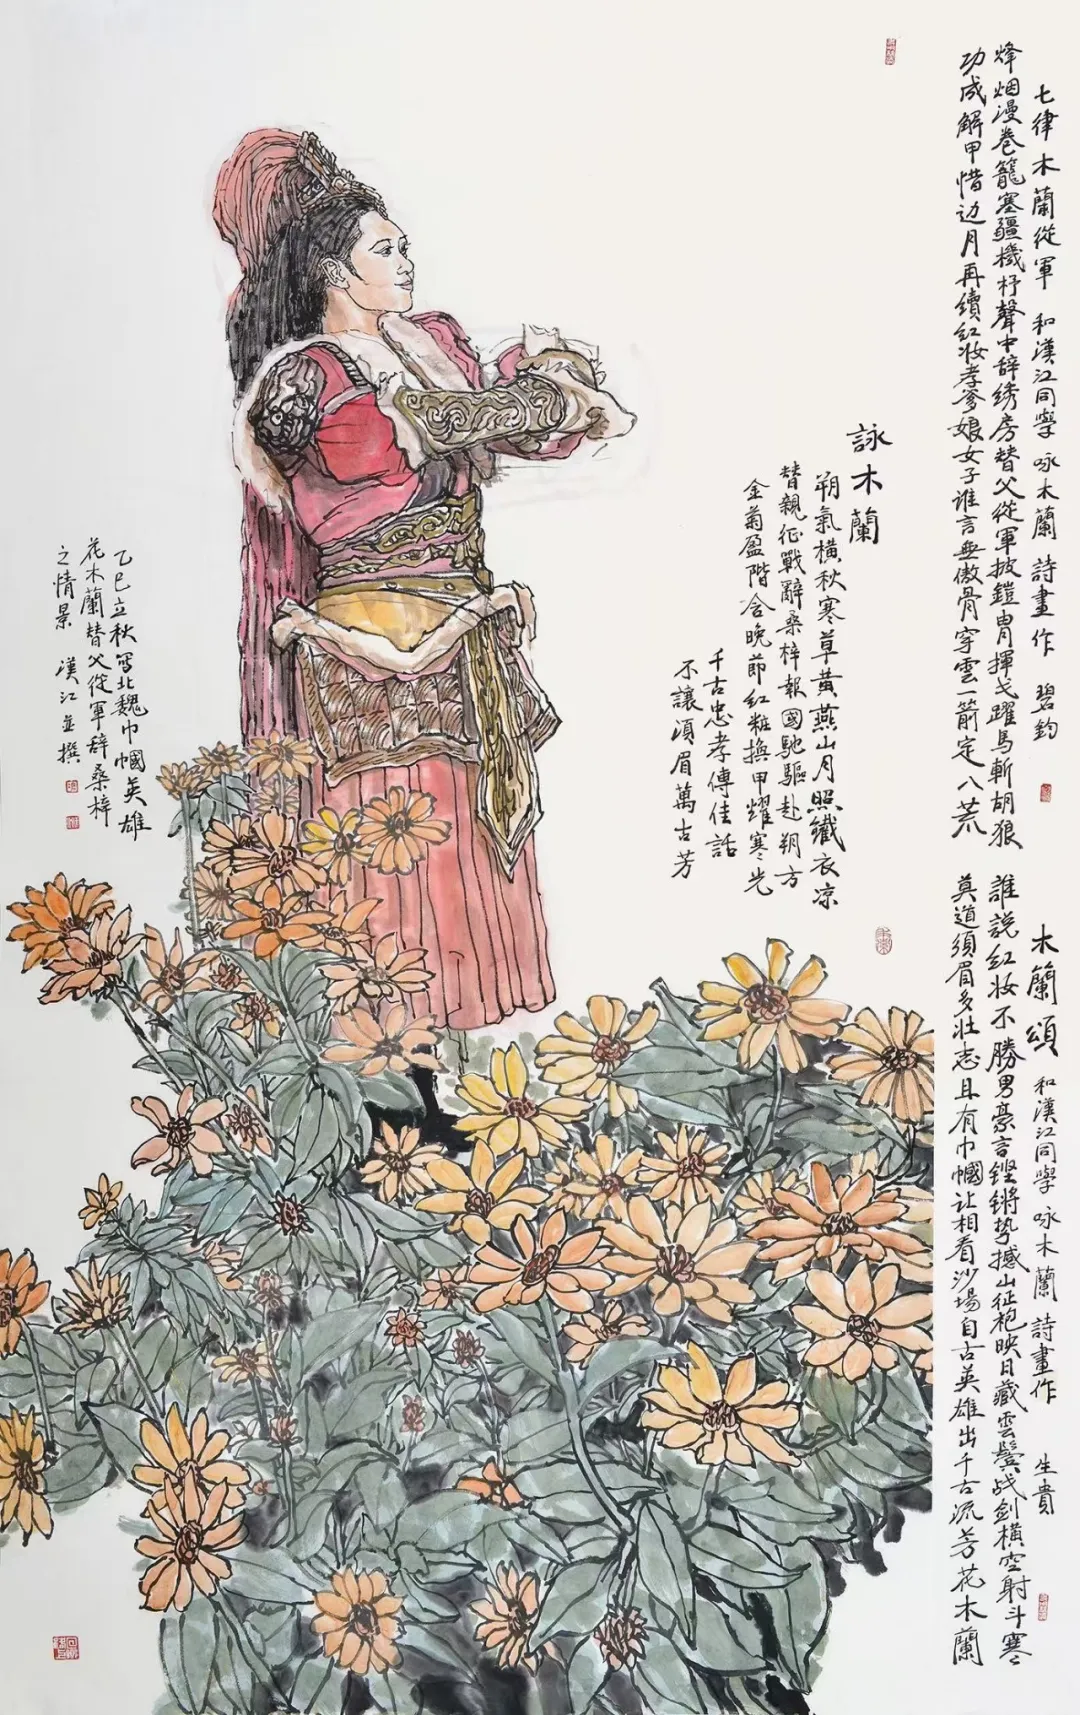 七律 木蘭從軍 和漢江同學 咏木蘭 詩畫作 碧鈞
烽烟漫卷籠塞疆機杼聲中辞绣房替父從軍披鎧胄揮戈躍馬斬胡狼
功成解甲惜边月再續红妆孝爹娘女子谁言無傲骨穿雲一箭定八荒
木蘭頌 和漢江同學 咏木蘭 詩畫作 生貴
誰說红妆不勝男豪言铿锵势撼山征袍映日藏雲鬓战剑横空射斗寒
莫道须眉多壮志且有巾帼让相看沙場自古英雄出千古流芳花木蘭
詠木蘭
朔氣橫秋寒草黄燕山月照鐵衣凉
替親征戰辭桑梓報國馳驅赴朔方
金菊盈階含晚節红粧換甲耀寒光
千古忠孝傳佳話
不讓須眉萬古芳
乙巳立秋寫北魏巾帼英雄
花木蘭替父從軍辞桑梓
之情景 漢江並撰